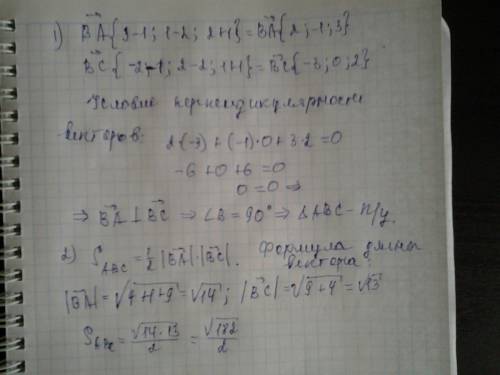 1) BA{3-1; 1-2; 2+1} = BA{2; -1; 3}
BC{-2-1; 2-2; 1+1} = BC{-3; 0; 2}
Условие перпендикулярности
векторов: 2·(-3) + (-1)·0 + 3·2 = 0
-6 + 0 + 6 = 0
0 = 0 ⇒
⇒ BA ⊥ BC ⇒ ∠B = 90° ⇒ ΔABC - п/у.
2) S_ABC = 1/2 |BA|·|BC|. Формула длины
вектора
|BA| = √4+1+9 = √14; |BC| = √9+4 = √13
S_ABC = √14·13/2 = √182/2